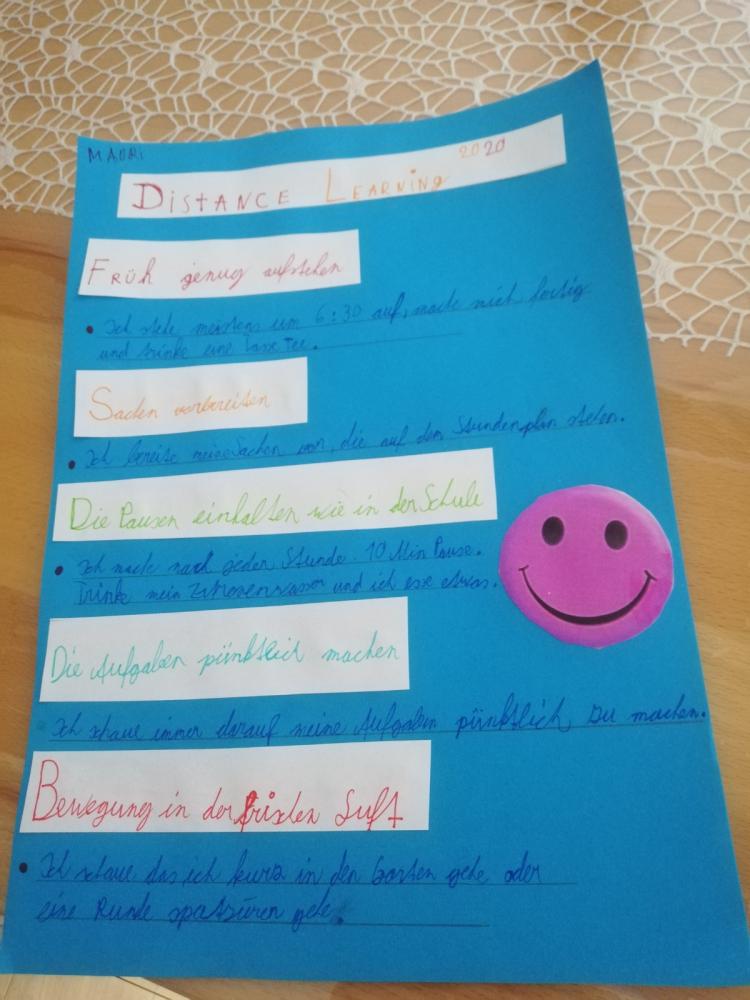 MAURI
DISTANCE LEARNING 2020
FRÜH genug aufstehen
Ich stehe meistens um 6:30 auf, mache mich fertig
und trinke eine Tasse Tee.
Sachen vorbereiten
Ich bereite meine Sachen vor, die auf dem Stundenplan stehen.
Die Pausen einhalten wie in der Schule
Ich mache nach jeder Stunde 10 Min Pause.
Trinke mein Zitronenwasser und ich esse etwas.
Die Aufgaben pünktlich machen
Ich schaue immer darauf meine Aufgaben pünktlich zu machen.
Bewegung in der frischen Luft
Ich schaue das ich kurz in den Garten gehe oder
eine Runde spatzüren gehe.